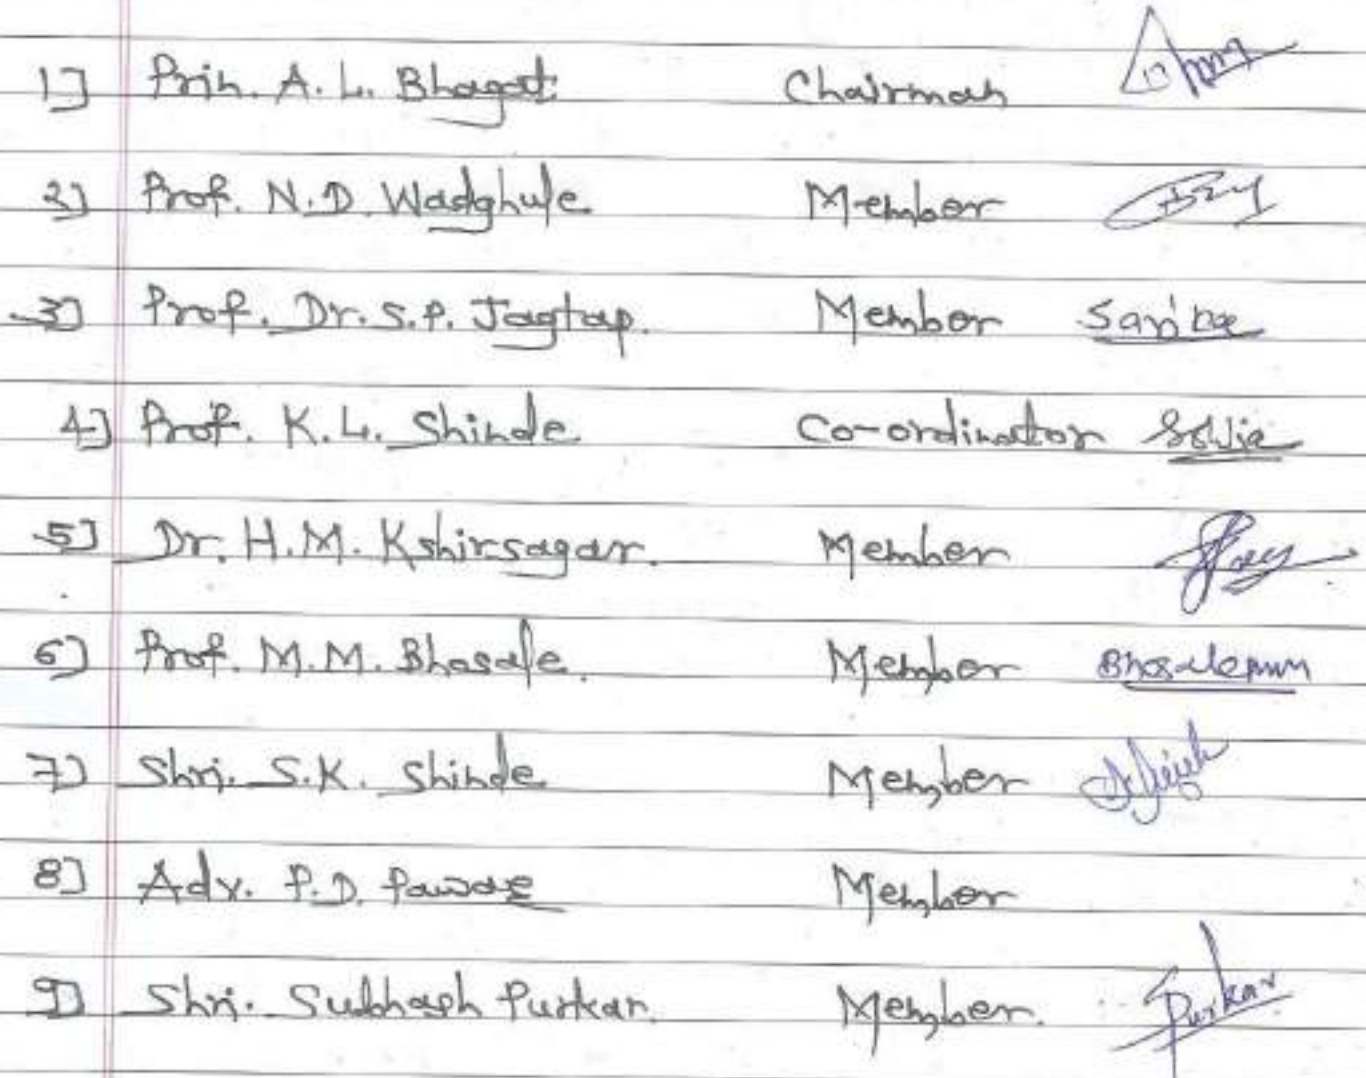 1] Prin. A. L. Bhagat Chairman
2] Prof. N.D. Wadghule Member
3] Prof. Dr. S.P. Jagtap. Member
4] Prof. K.L. Shinde Co-ordinator
5] Dr. H.M. Kshirsagar. Member
6] Prof. M.M. Bhosale. Member Bhosalemm
7] Shri. S.K. Shinde Member
8] Adv. P.D. Pawar Member
9] Shri. Subhash Purkar. Member. Purkar